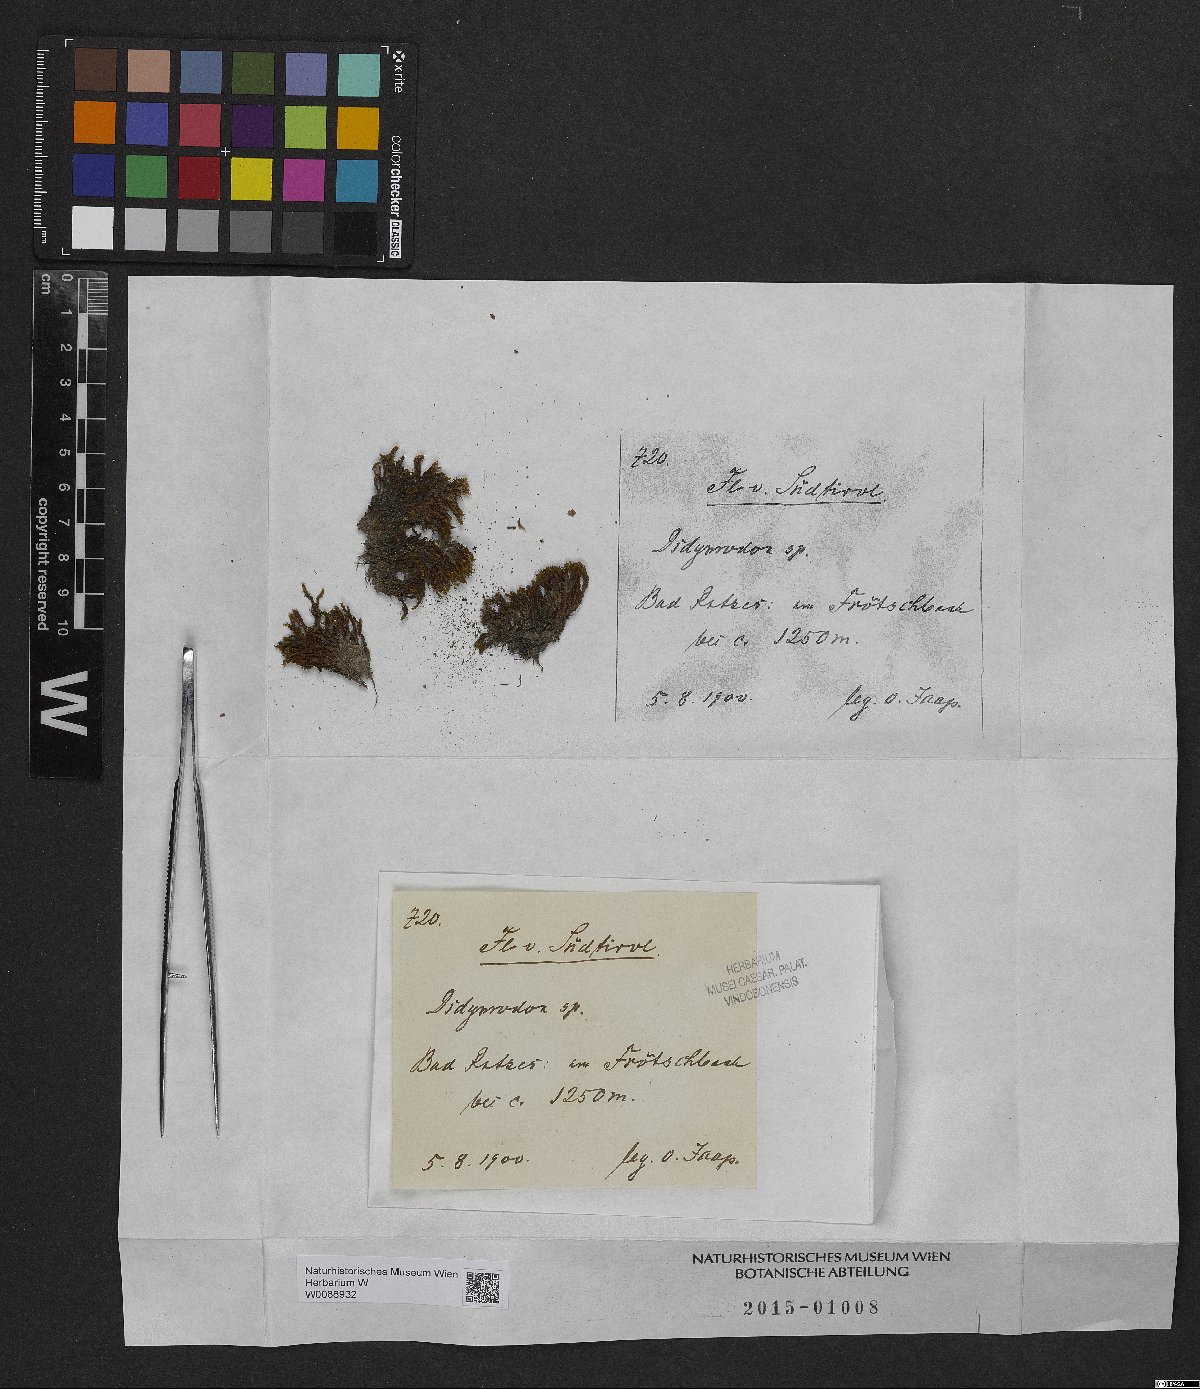 x-rite
colorchecker CLASSIC
mm
cm
0 1 2 3 4 5 6 7 8 9 10
copyright reserved
W
720.
Fl. v. Südtirol
Didymodon sp.
Bad Ratzes: am Frötschbach
bei c. 1250 m.
5. 8. 1900. leg. O. Jaap.
720.
Fl. v. Südtirol.
Didymodon sp.
Bad Ratzes: am Frötschbach
bei c. 1250 m.
5. 8. 1900. leg. O. Jaap.
HERBARIUM
MUSEI CAESAR. PALAT.
VINDOBONENSIS
Naturhistorisches Museum Wien
Herbarium W
W0088932
NATURHISTORISCHES MUSEUM WIEN
BOTANISCHE ABTEILUNG
2015-01008